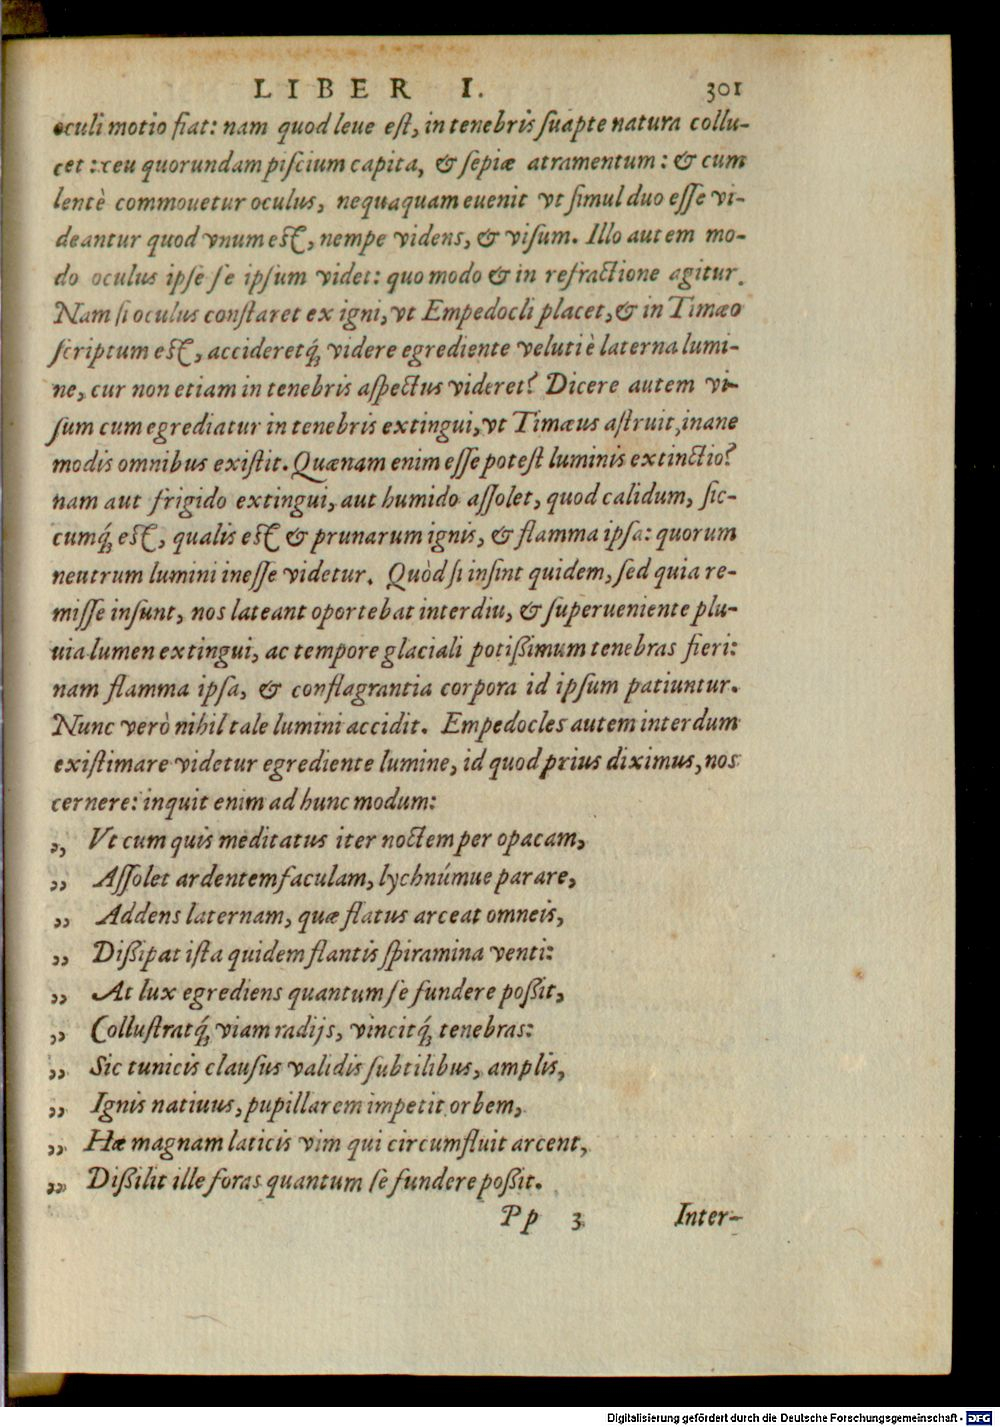 LIBER I. 301
oculi motio fiat: nam quod leue eſt, in tenebris ſuapte natura collu-
cet: ceu quorundam piſcium capita, & ſepiæ atramentum: & cum
lentè commouetur oculus, nequaquam euenit vt ſimul duo eſſe vi-
deantur quod vnum eſt, nempe videns, & viſum. Illo autem mo-
do oculus ipſe ſe ipſum videt: quo modo & in refractione agitur.
Nam ſi oculus conſtaret ex igni, vt Empedocli placet, & in Timæo
ſcriptum eſt, accideretq́; videre egrediente veluti è laterna lumi-
ne, cur non etiam in tenebris aſpectus videret? Dicere autem vi-
ſum cum egrediatur in tenebris extingui, vt Timæus aſtruit, inane
modis omnibus exiſtit. Quænam enim eſſe poteſt luminis extinctio?
nam aut frigido extingui, aut humido aſſolet, quod calidum, ſic-
cumq́; eſt, qualis eſt & prunarum ignis, & flamma ipſa: quorum
neutrum lumini ineſſe videtur. Quòd ſi inſint quidem, ſed quia re-
miſſe inſunt, nos lateant oportebat interdiu, & ſuperueniente plu-
uia lumen extingui, ac tempore glaciali potißimum tenebras fieri:
nam flamma ipſa, & conflagrantia corpora id ipſum patiuntur.
Nunc verò nihil tale lumini accidit. Empedocles autem interdum
exiſtimare videtur egrediente lumine, id quod prius diximus, nos
cernere: inquit enim ad hunc modum:
„ Vt cum quis meditatus iter noctem per opacam,
„ Aſſolet ardentem faculam, lychnúmue parare,
„ Addens laternam, quæ flatus arceat omneis,
„ Dißipat iſta quidem flantis ſpiramina venti:
„ At lux egrediens quantum ſe fundere poßit,
„ Colluſtratq́; viam radijs, vincitq́; tenebras:
„ Sic tunicis clauſus validis ſubtilibus, amplis,
„ Ignis natiuus, pupillarem impetit orbem,
„ Hæ magnam laticis vim qui circumfluit arcent,
„ Dißilit ille foras quantum ſe fundere poßit.
Pp 3 Inter-
Digitalisierung gefördert durch die Deutsche Forschungsgemeinschaft - DFG